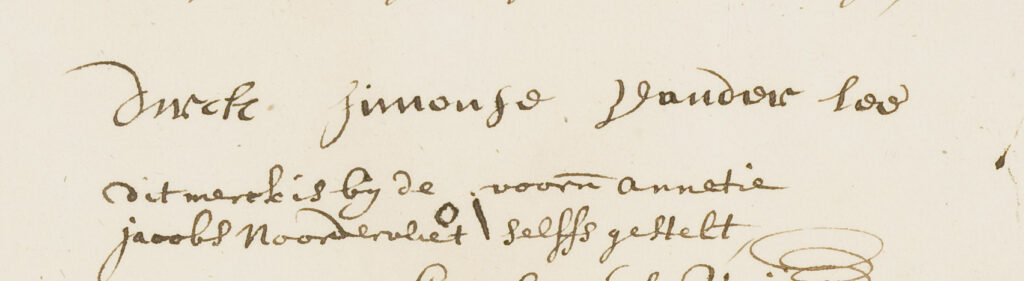 Dirck Simonse Vander lee
Dit merck is by de voorn Annetie
Jacobs Noordervliet selffs gestelt